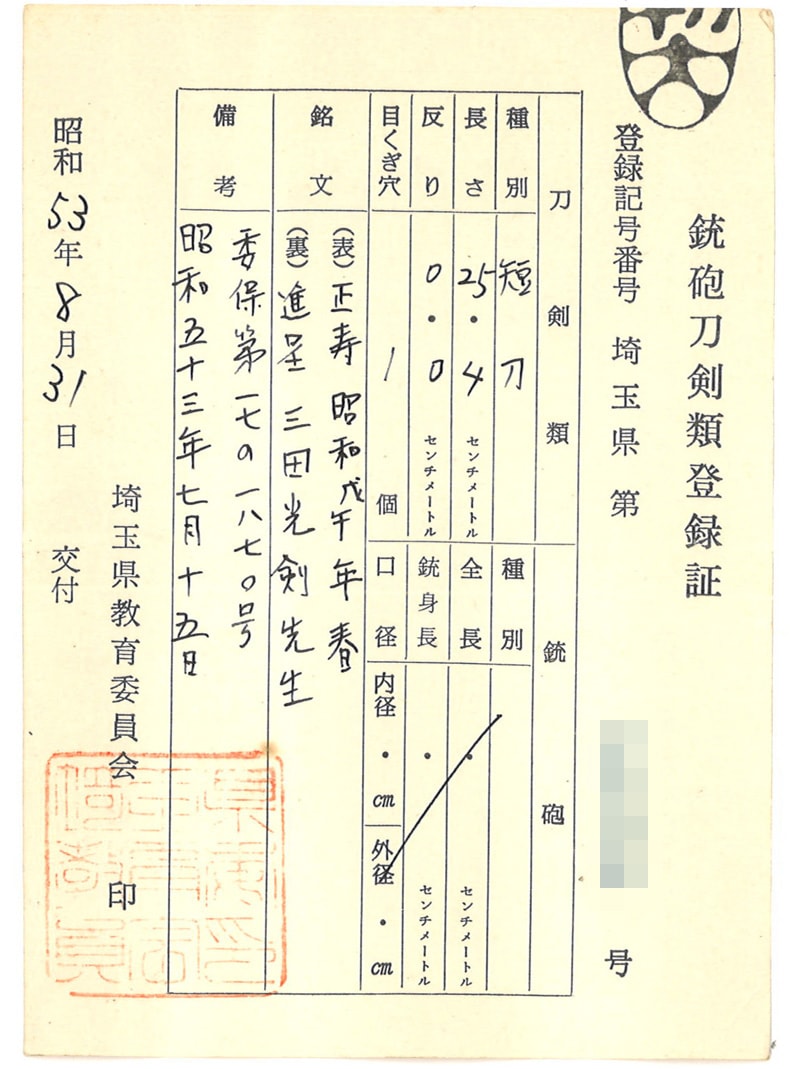 銃砲刀剣類登録証
登録記号番号 埼玉県 第 号
刀剣類
種別 短刀
長さ 25・4 センチメートル
反り 0・0 センチメートル
目くぎ穴 1 個
銘文
(表)正寿 昭和戊午年春
(裏)進呈 三田光剣先生
備考
委保第一七の一八七〇号
昭和五十三年七月十五日
銃砲
種別
全長 ・ センチメートル
銃身長 ・ センチメートル
口径 内径 ・ cm 外径 ・ cm
埼玉県教育委員会 印
昭和53年8月31日 交付